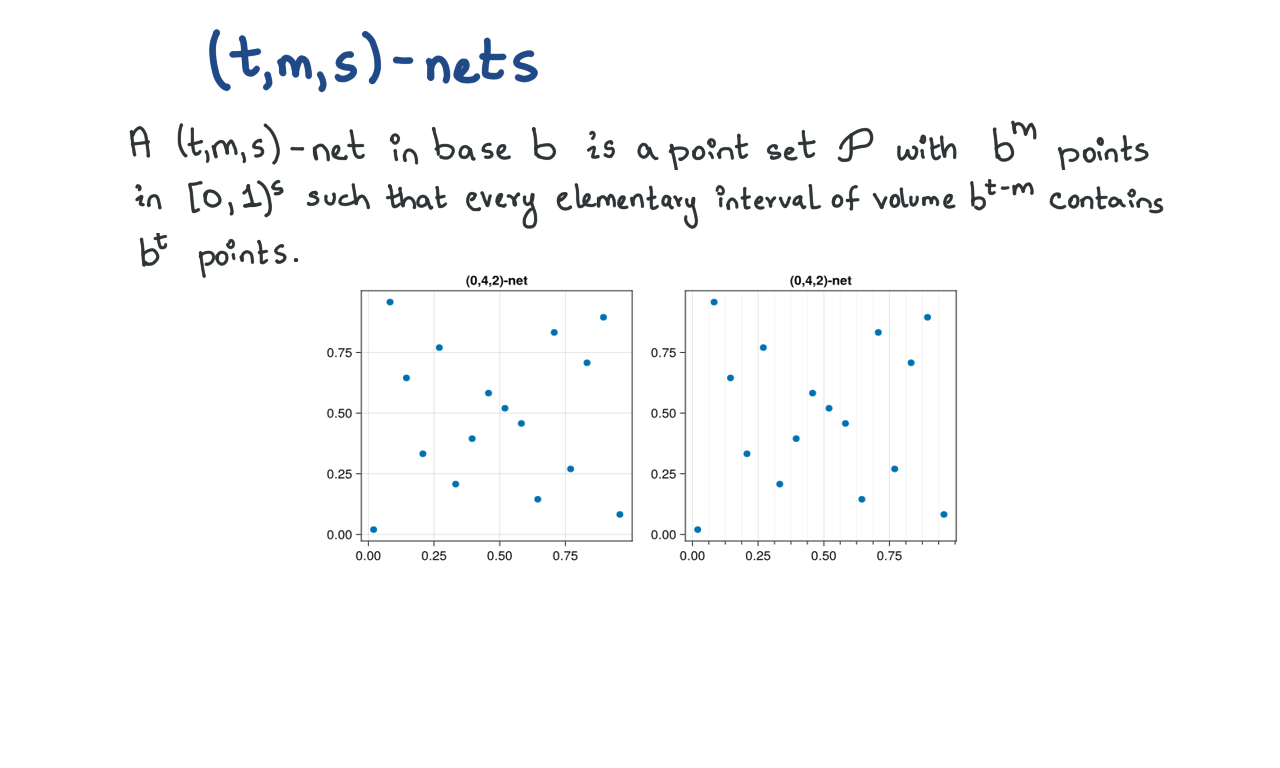 (t,m,s)-nets
A (t,m,s)-net in base b is a point set P with b^m points
in [0,1)^s such that every elementary interval of volume b^{t-m} contains
b^t points.
(0,4,2)-net (0,4,2)-net
0.75 0.75
0.50 0.50
0.25 0.25
0.00 0.00
0.00 0.25 0.50 0.75 0.00 0.25 0.50 0.75